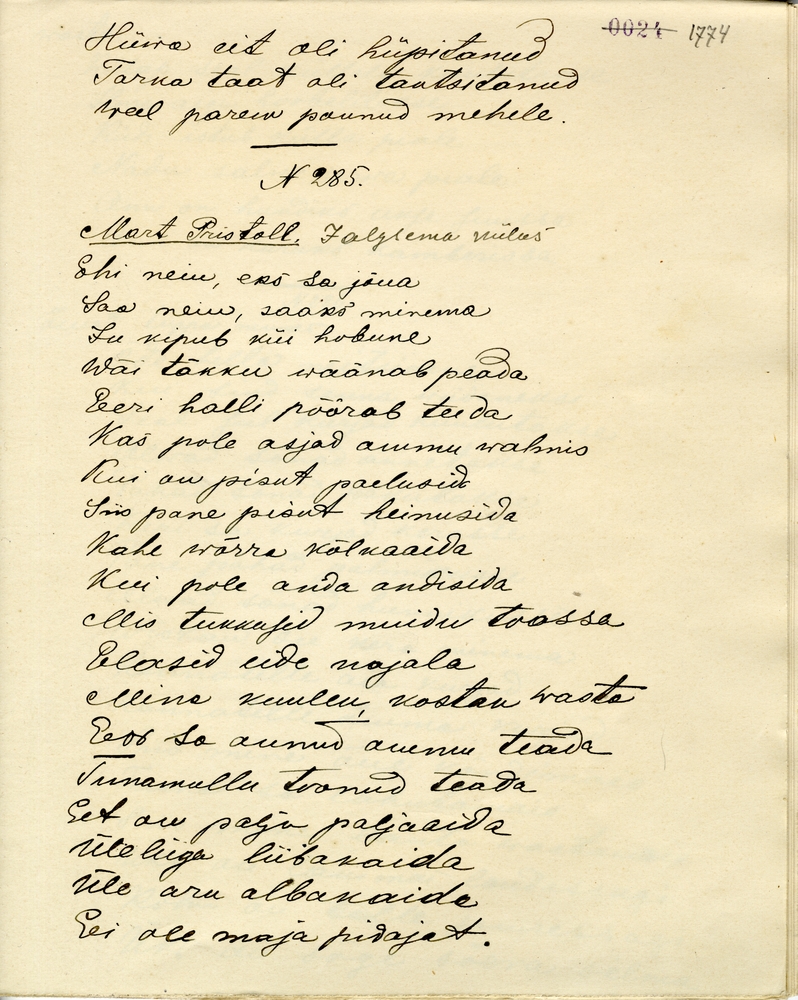 0024 1774
Hüwa eit oli hüpitanud
Tarka taat oli tantsitanud
Weel parem pannud mehele.
N 285.
Mart Pristoll. Jalgsema külas
Ehi neiu, eks sa jõua
Saa neiu, saaks minema
Ju kipub küi hobune
Wäi täkku wäänab peada
Eeri halli pöörab teeda
Kas pole asjad ammu walmis
Kui on pisut paelusid
Siis pane pisut heinusida
Kahe wõrra kõlkaaida
Kui pole anda andisida
Mis tukkusid muidu toassa
Elasid eide najala
Mina kuulen, kostan wasta
Eeos sa annud ammu teada
Tunamullu toonud teada
Eet on palju paljaaida
Üleliiga liibakaida
Üle aru albakaida
Ei ole maja pidajat.